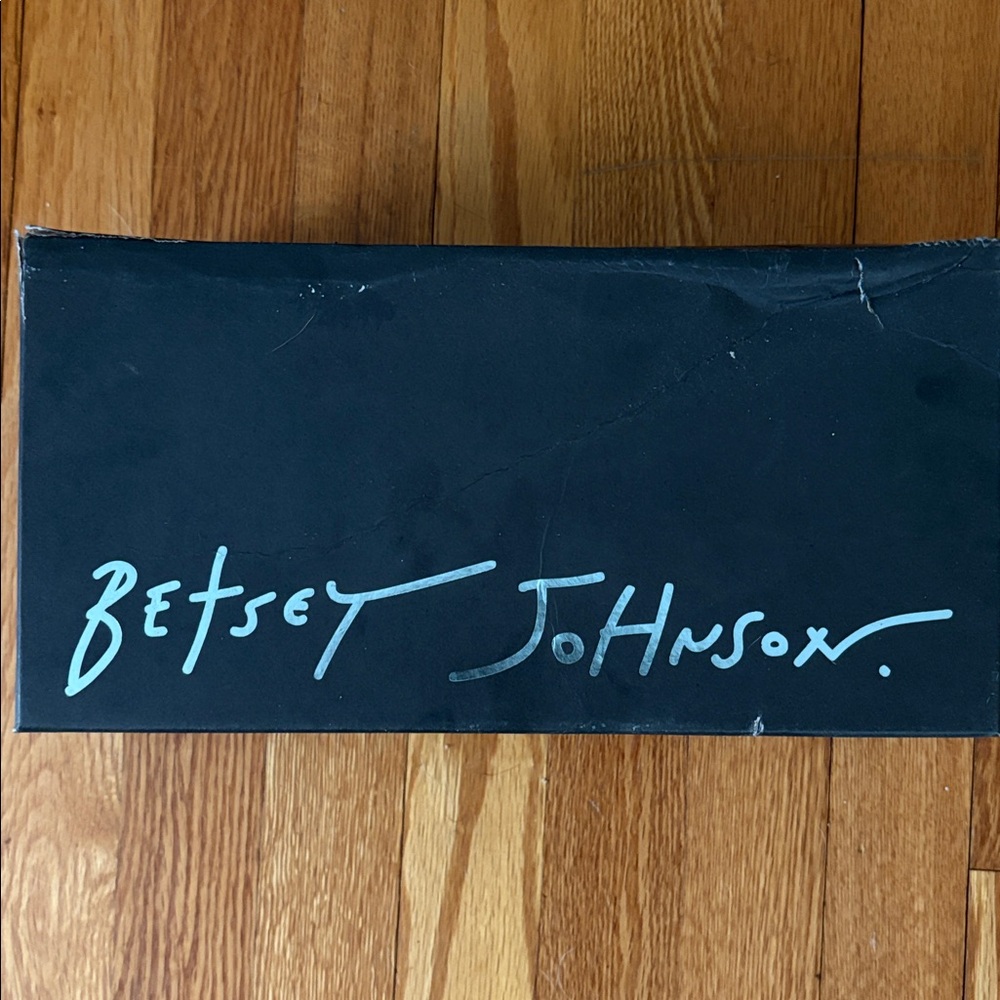 BEtSEY JOHNSON.